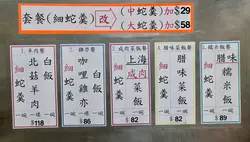 套餐(細蛇羹)改(中蛇羹)加$29
(大蛇羹)加$58
1. 羊肉餐
細蛇羹
北菇羊肉
白飯
$118
細蛇羹
咖哩雞亦
白飯
$86
3. 咸肉菜飯餐
細蛇羹
上海
咸肉
菜飯
$82
腊味菜飯餐
細蛇羹
腊味菜飯
$82
細蛇羹
腊味
糯米飯
$89